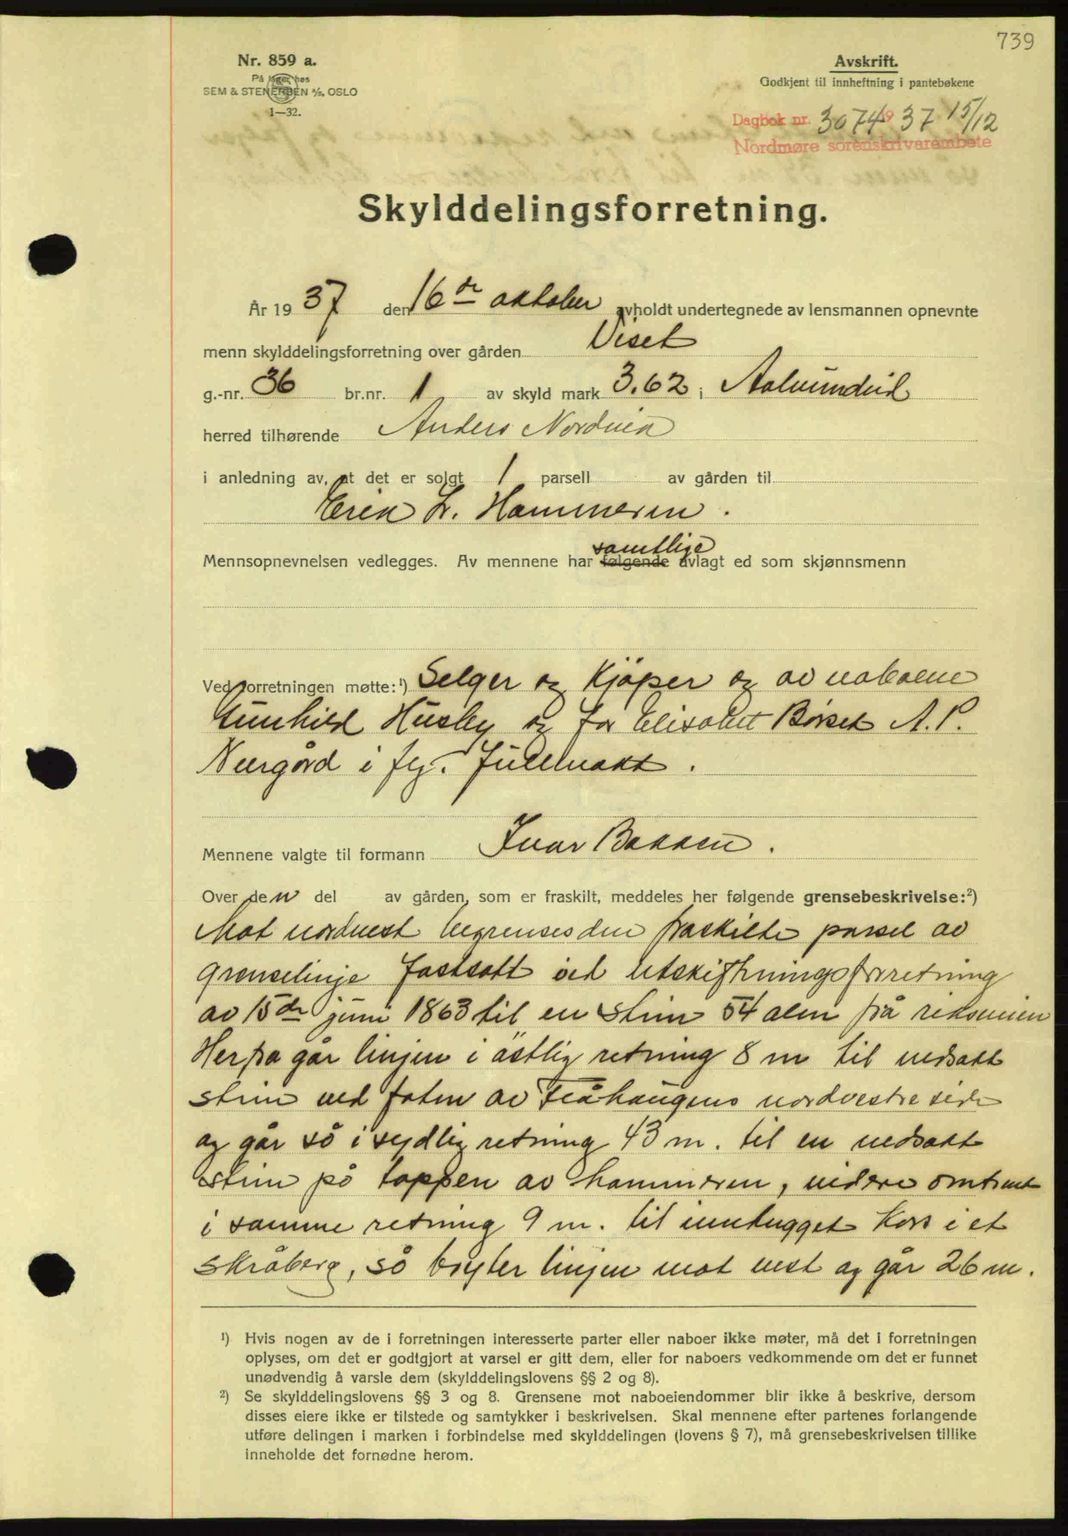 739
Nr. 859 a.
På lager hos
SEM & STENERSEN A/S, OSLO
1—32.
Avskrift.
Godkjent til innheftning i pantebøkene
Dagbok nr. 3074 1937 15/12
Nordmøre sorenskrivarembete
Skylddelingsforretning.
År 1937 den 16de oktober avholdt undertegnede av lensmannen opnevnte
menn skylddelingsforretning over gården Viset
g.-nr. 36 br.nr. 1 av skyld mark 3.62 i Aalvundeid
herred tilhørende Anders Nordvik
i anledning av, at det er solgt 1 parsell av gården til
Erik L. Hammeren.
samtlige
Mennsopnevnelsen vedlegges. Av mennene har følgende avlagt ed som skjønnsmenn
Ved forretningen møtte:¹) Selger og Kjøper og av naboene
Gunhild Husby og for Elisabet Børset A. P.
Neergård i flg. fullmakt.
Mennene valgte til formann Ivar Bakken.
Over den del av gården, som er fraskilt, meddeles her følgende grensebeskrivelse:²)
Mot nordvest begrenses den fraskilte parsel av
grenselinje fastsatt ved utskiftningsforretning
av 15de juni 1863 til en stein 54 alen frå riksveien
Herfra går linjen i østlig retning 8 m til nedsatt
stein ved foten av Fråhaugens nordvestre side
og går så i sydlig retning 43 m. til en nedsatt
stein på toppen av hammeren, videre omtrent
i samme retning 9 m. til innhugget Kors i et
skråberg, så bryter linjen mot vest og går 26 m.
¹) Hvis nogen av de i forretningen interesserte parter eller naboer ikke møter, må det i forretningen
oplyses, om det er godtgjort at varsel er gitt dem, eller for naboers vedkommende om det er funnet
unødvendig å varsle dem (skylddelingslovens §§ 2 og 8).
²) Se skylddelingslovens §§ 3 og 8. Grensene mot naboeiendommer blir ikke å beskrive, dersom
disses eiere ikke er tilstede og samtykker i beskrivelsen. Skal mennene efter partenes forlangende
utføre delingen i marken i forbindelse med skylddelingen (lovens § 7), må grensebeskrivelsen tillike
inneholde det fornødne herom.